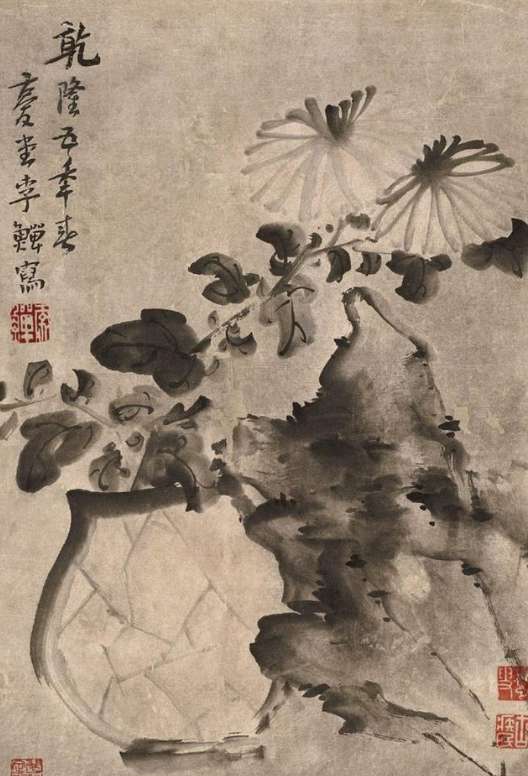 乾隆五年春
复堂李鱓寫